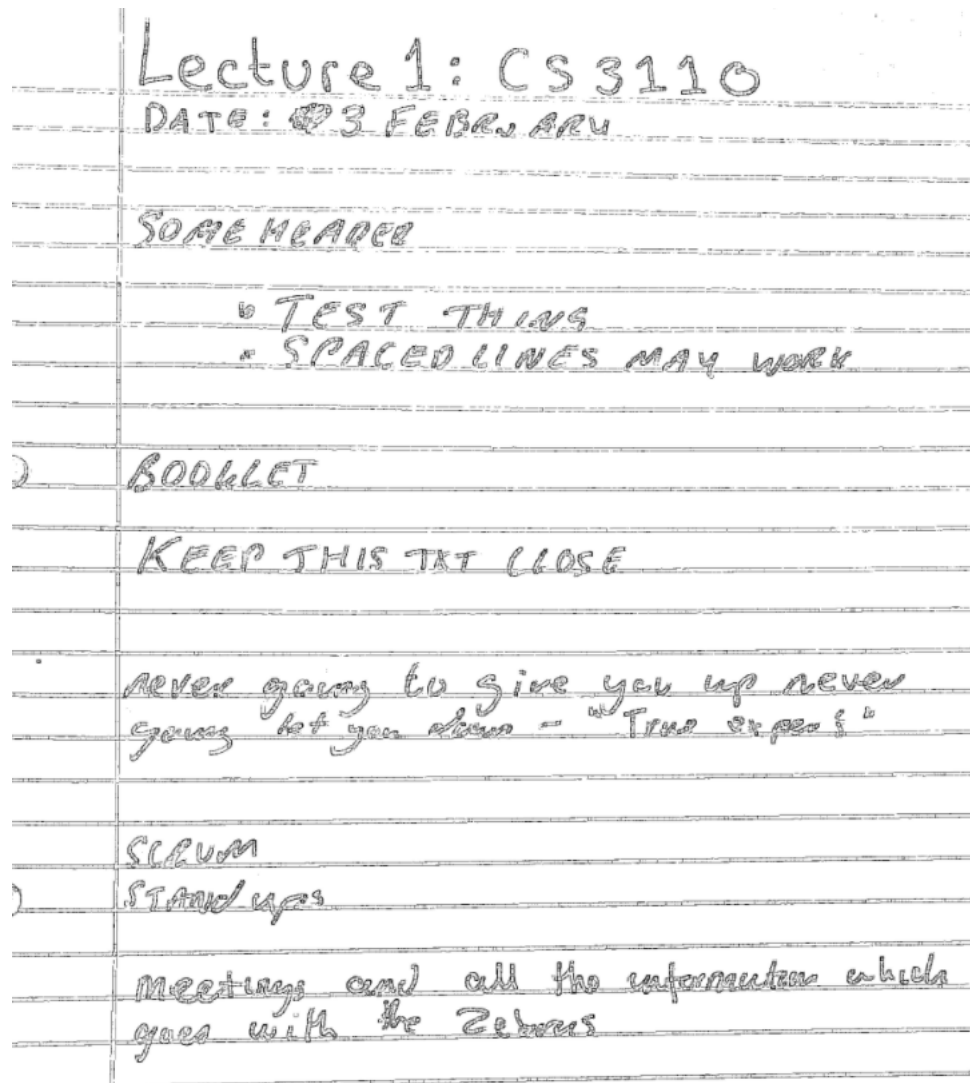 Lecture 1: CS 3110
DATE: 3 FEBRUARY
SOME HEADER
• TEST THING
- SPACED LINES MAY WORK
BOOKLET
KEEP THIS TXT CLOSE
never going to give you up never
going let you down - "True
SCRUM
STAND UPS
meetings and all the information which
goes with the Zebras